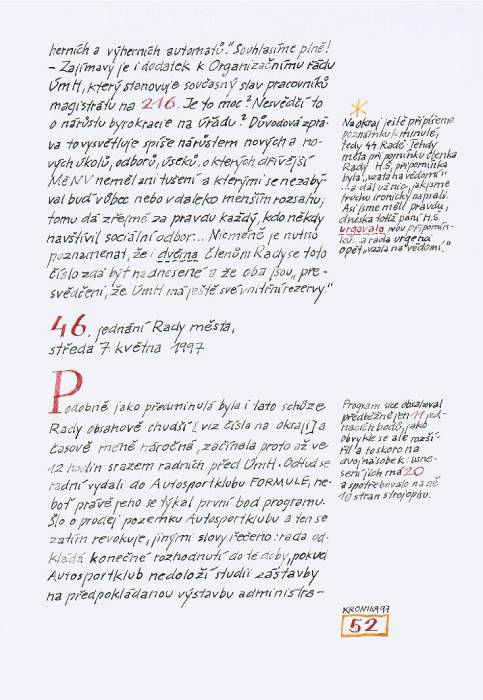 herních a výherních automatů." Souhlasíme plně!
– Zajímavý je i dodatek k Organizačnímu řádu
ÚmH, který stanovuje současný stav pracovníků
magistrátu na 216. Je to moc? Nesvědčí to
o nárůstu byrokracie na úřadu? Důvodová zprá-
va to vysvětluje spíše nárůstem nových a no-
vých úkolů, odborů, úseků, o kterých dřívější
MěNV neměl ani tušení a kterými se nezabý-
val buď vůbec nebo v daleko menším rozsahu,
tomu dá zřejmě za pravdu každý, kdo někdy
navštívil sociální odbor... Nicméně je nutno
poznamenat, že i dvěma členům Rady se toto
číslo zdá být nadnesené a že oba jsou „pře-
svědčeni, že ÚmH má ještě své vnitřní rezervy."
Na okraj ještě připíšeme
poznámku k minulé,
tedy 44. Radě. Tehdy
měla připomínku členka
Rady H.S., připomínka
byla „vzata na vědomí"
...a dál už nic, jak jsme
trochu ironicky napsali.
Asi jsme měli pravdu,
dneska totiž paní H.S.
urgovala svou připomín-
ku... a rada urgenci
opět „vzala na vědomí."
46. jednání Rady města,
středa 7. května 1997
Podobně jako předminulá byla i tato schůze
Rady obsahově chudší [viz čísla na okraji] a
časově méně náročná, začínala proto až ve
12 hodin srazem radních před ÚmH. Odtud se
radní vydali do Autosportklubu FORMULE, ne-
boť právě jeho se týkal první bod programu.
Šlo o prodej pozemku Autosportklubu a ten se
zatím revokuje, jinými slovy řečeno: rada od-
kládá konečné rozhodnutí do té doby, pokud
Autosportklub nedoloží studii zástavby
na předpokládanou výstavbu administra-
Program sice obsahoval
předběžně jen 11 jed-
nacích bodů, jako
obvykle se ale rozší-
řil a to skoro na
dvojnásobek: usne-
sení jich má 20
a spotřebovalo na ně
10 stran strojopisu.
KRONIKA 97
52